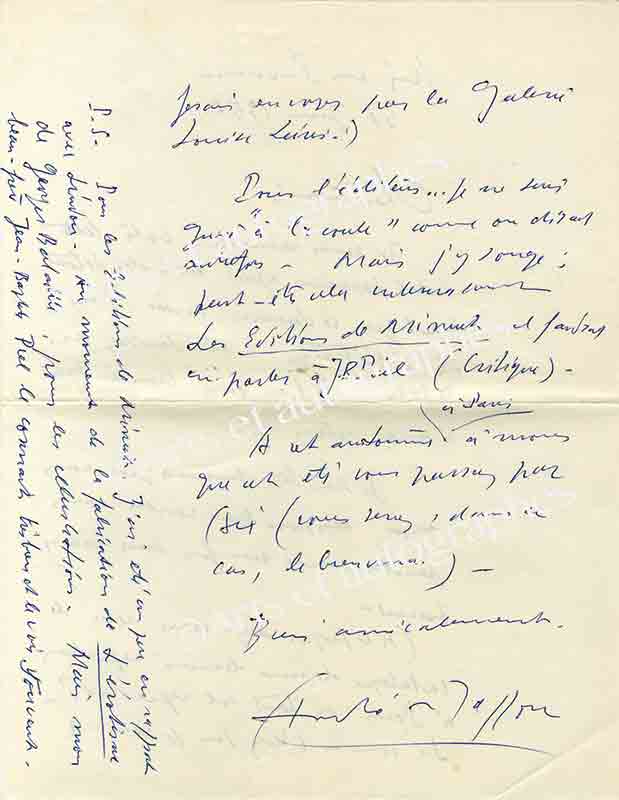 ferais envoyer par la Galerie
Louise Leiris.)
Pour l'éditeur... je ne suis
guère "à l'écoute" comme on disait
autrefois – Mais j'y songe ;
peut-être cela intéresserait
Les Editions de Minuit il faudrait
en parler à J.B. Piel (Critique) –
à Paris
A cet automne à moins
que cet été vous passiez par
Aix (vous serez, dans ce
cas, le bienvenu.) –
Bien amicalement.
André Masson
P.S- Pour les Éditions de Minuit. J'ai été un peu en rapport
avec Lindon – au moment de la fabrication de L'érotisme
de Georges Bataille ; pour les illustrations. Mais mon
beau-frère Jean-Baptiste Piel le connait très bien et le voit souvent.